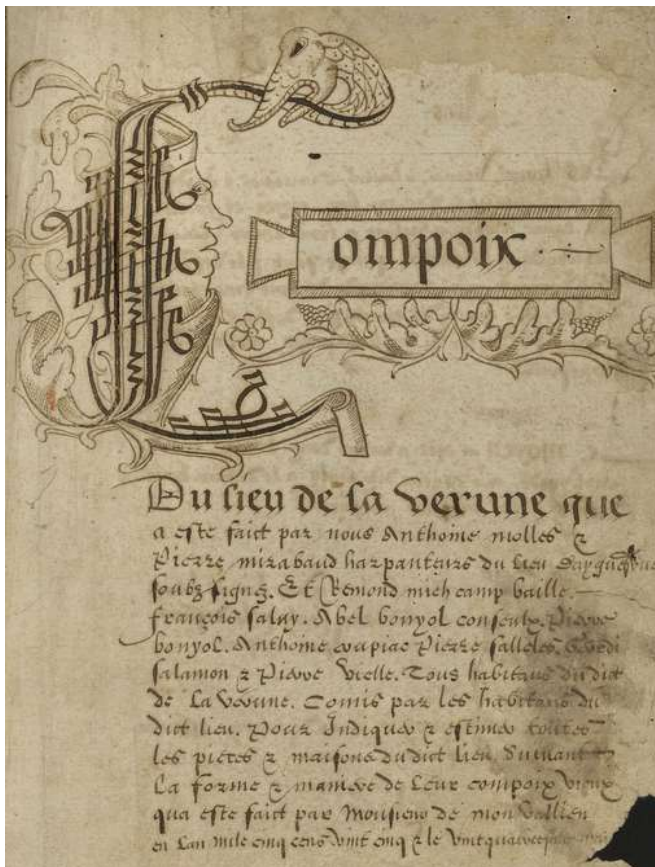 Compoix
Du lieu de la verune que
a este faict par nous Anthoine molles &
Pierre mirabaud harpanteurs du lieu
soubz signes. Et Remond mich camp baille.
françois salay. Abel bonyol conseulx. Pierre
bonyol. Anthoine coupiac Pierre salleles.
salamon & Pierre vielle. Tous habitans du dict
de La verune. Comis par les habitans du
dict lieu. Pour Indiquer & estimer toutes
les pieces & maisons du dict lieu Suivant
La forme & maniere de Leur compoix vieux
qua este faict par Monsieur de mon
en Lan mile cinq cens vint cinq & le